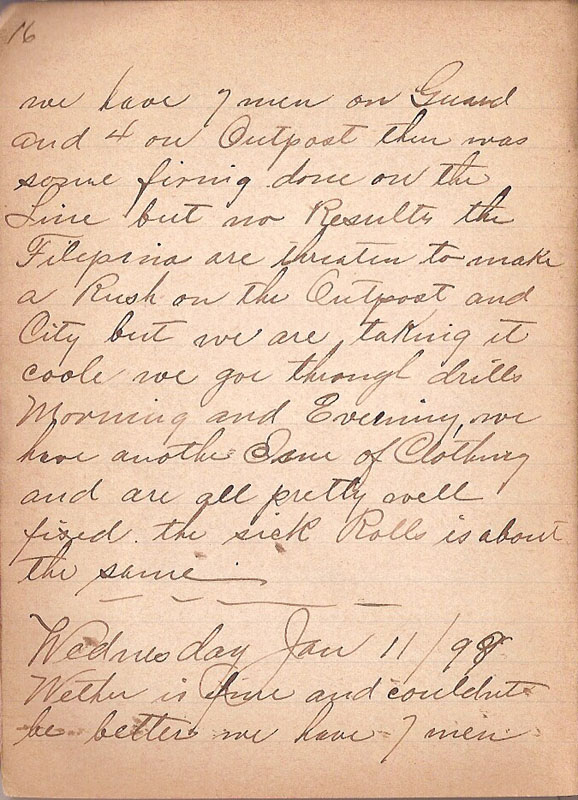 16
we have 7 men on Guard
and 4 on Outpost then was
some firing done on the
Line but no Results the
Filepino are threaten to make
a Rush on the Outpost and
City but we are taking it
coole we goe through drills
Morning and Evening we
have anothe Issue of Clothing
and are all pretty well
fixed. the sick Rolls is about
the same
Wednesday Jan 11/98
Wether is fine and couldnt
be better we have 7 men